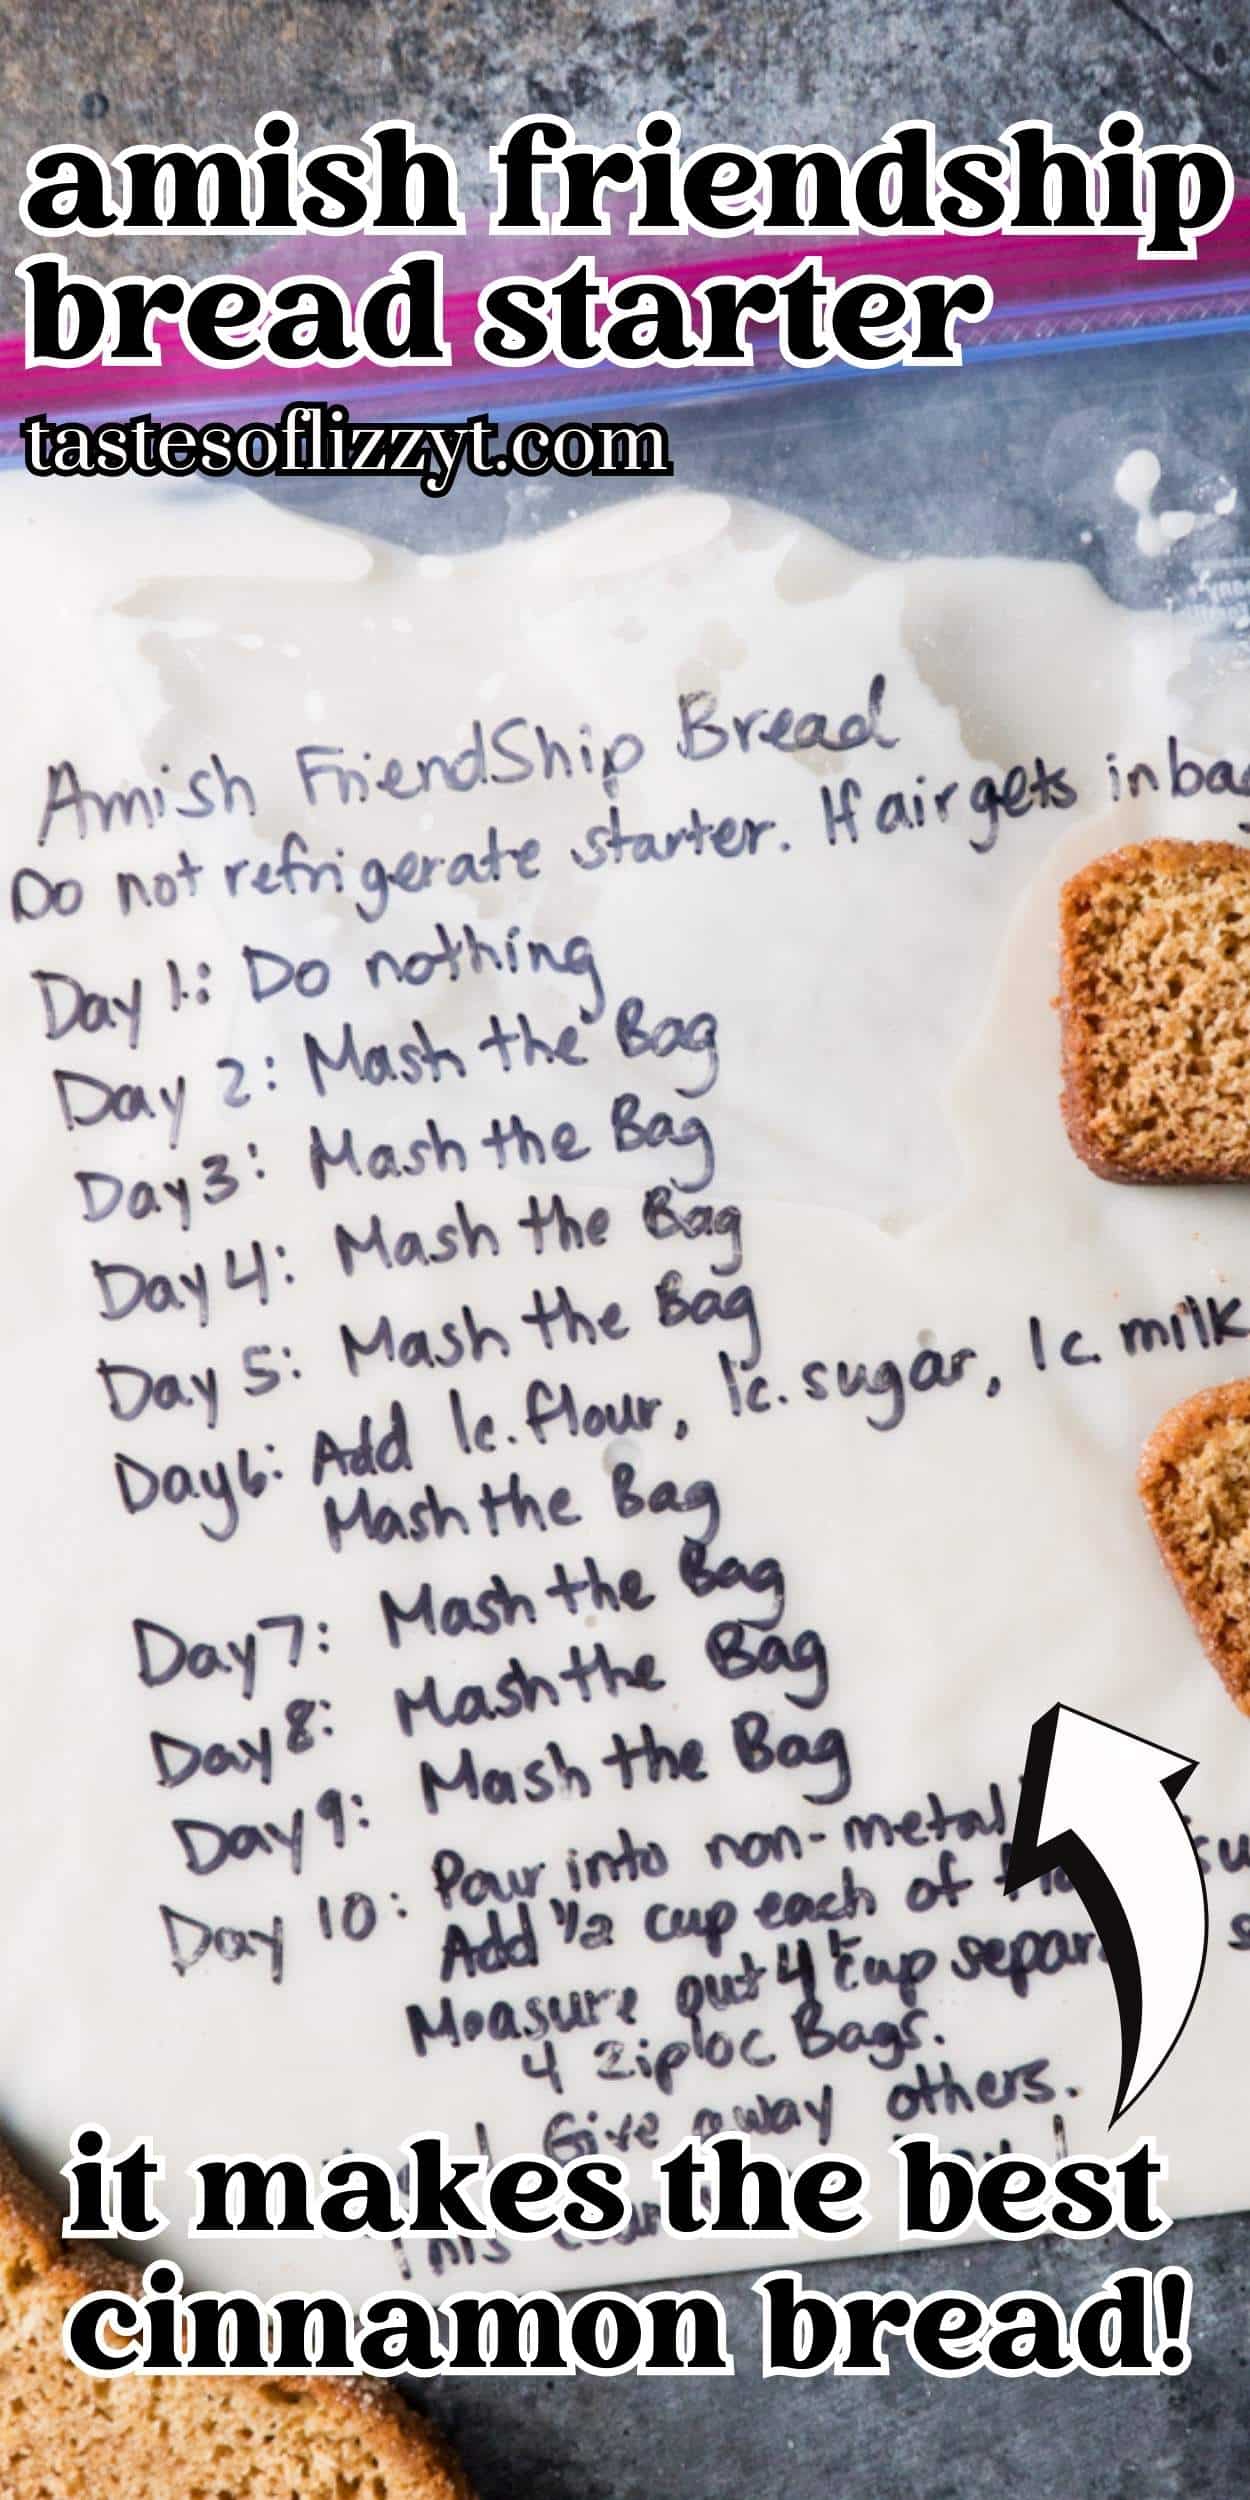 amish friendship
bread starter
tastesoflizzyt.com
Amish FriendShip Bread
Do not refrigerate starter. If air gets in bag
Day 1: Do nothing
Day 2: Mash the Bag
Day 3: Mash the Bag
Day 4: Mash the Bag
Day 5: Mash the Bag
Day 6: Add 1c. flour, 1c. sugar, 1c. milk
Mash the Bag
Day 7: Mash the Bag
Day 8: Mash the Bag
Day 9: Mash the Bag
Day 10: Pour into non-metal
Add 1/2 cup each of
Measure out 4 1 cup
4 ziploc Bags.
Give away others.
This
it makes the best
cinnamon bread!